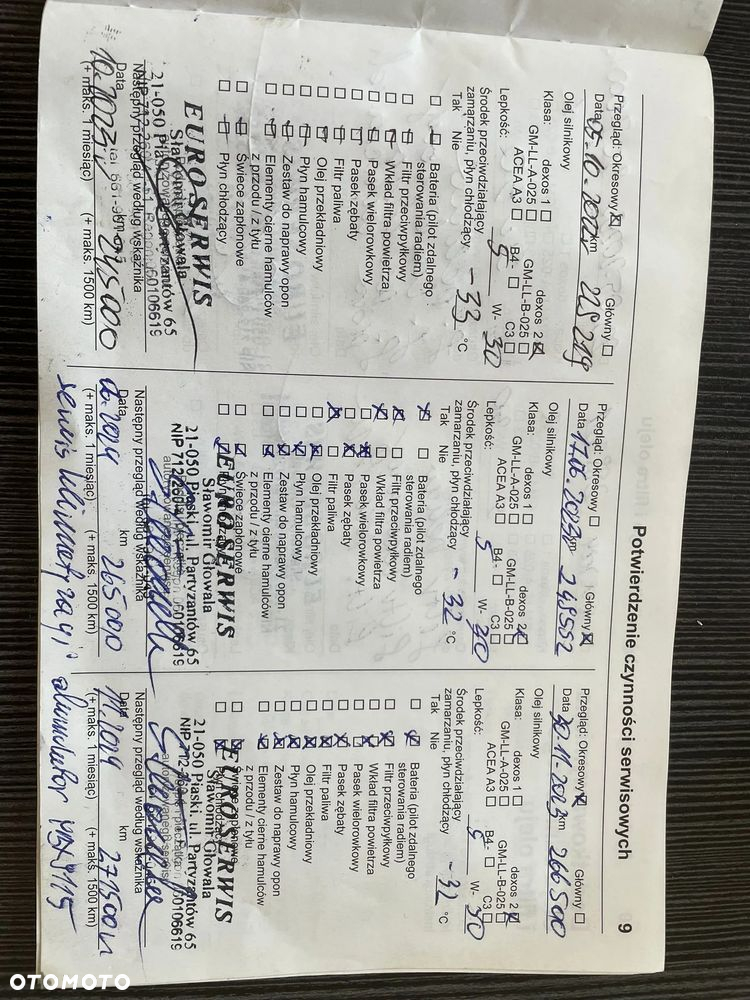 Potwierdzenie czynności serwisowych
9
Przegląd: Okresowy Główny
Data 05-10-2022 km 225 219
Olej silnikowy
Klasa: dexos 1 dexos 2
GM-LL-A-025 GM-LL-B-025
ACEA A3 B4- C3
Lepkość: 5 W- 30
Środek przeciwdziałający
zamarzaniu, płyn chłodzący -33 °C
Tak Nie
Bateria (pilot zdalnego
sterowania radiem)
Filtr przeciwpyłkowy
Wkład filtra powietrza
Pasek wielorowkowy
Pasek zębaty
Filtr paliwa
Olej przekładniowy
Płyn hamulcowy
Zestaw do naprawy opon
Elementy cierne hamulców
z przodu / z tyłu
Świece zapłonowe
Płyn chłodzący
EURO-SERWIS
Sławomir Głowala
21-050 Piaski, ul. Partyzantów 65
Następny przegląd według wskaźnika
Data km
10.2023 245000
(+ maks. 1 miesiąc) (+ maks. 1500 km)
Przegląd: Okresowy Główny
Data 17.05.2023 km 248552
Olej silnikowy
Klasa: dexos 1 dexos 2
GM-LL-A-025 GM-LL-B-025
ACEA A3 B4- C3
Lepkość: 5 W- 30
Środek przeciwdziałający
zamarzaniu, płyn chłodzący -32 °C
Tak Nie
Bateria (pilot zdalnego
sterowania radiem)
Filtr przeciwpyłkowy
Wkład filtra powietrza
Pasek wielorowkowy
Pasek zębaty
Filtr paliwa
Olej przekładniowy
Płyn hamulcowy
Zestaw do naprawy opon
Elementy cierne hamulców
z przodu / z tyłu
Świece zapłonowe
EURO-SERWIS
Sławomir Głowala
21-050 Piaski, ul. Partyzantów 65
Następny przegląd według wskaźnika
Data km
06.2024 265000
(+ maks. 1 miesiąc) (+ maks. 1500 km)
serwis klimatyzacji
Przegląd: Okresowy Główny
Data 30.11.2023 km 266500
Olej silnikowy
Klasa: dexos 1 dexos 2
GM-LL-A-025 GM-LL-B-025
ACEA A3 B4- C3
Lepkość: 5 W- 30
Środek przeciwdziałający
zamarzaniu, płyn chłodzący -32 °C
Tak Nie
Bateria (pilot zdalnego
sterowania radiem)
Filtr przeciwpyłkowy
Wkład filtra powietrza
Pasek wielorowkowy
Pasek zębaty
Filtr paliwa
Olej przekładniowy
Płyn hamulcowy
Zestaw do naprawy opon
Elementy cierne hamulców
z przodu / z tyłu
EURO-SERWIS
Sławomir Głowala
21-050 Piaski, ul. Partyzantów 65
Następny przegląd według wskaźnika
Data km
11.2024 271500
(+ maks. 1 miesiąc) (+ maks. 1500 km)
akumulator
OTOMOTO